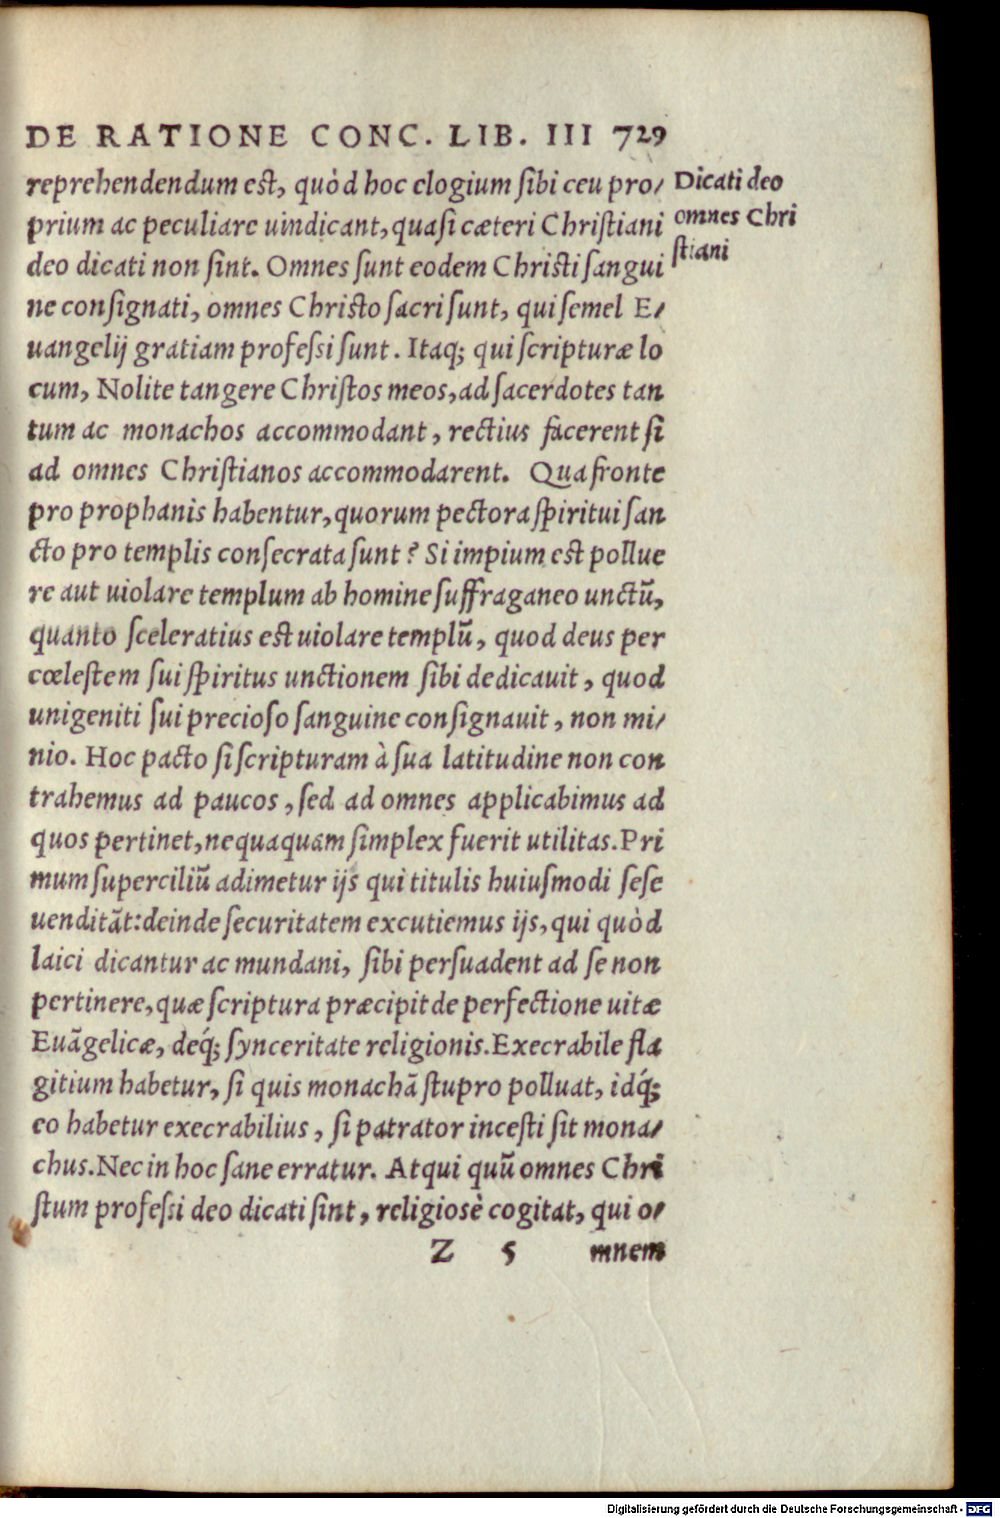 DE RATIONE CONC. LIB. III 729
reprehendendum est, quòd hoc elogium sibi ceu pro/
prium ac peculiare uindicant, quasi cæteri Christiani
deo dicati non sint. Omnes sunt eodem Christi sangui
ne consignati, omnes Christo sacri sunt, qui semel E/
uangelij gratiam professi sunt. Itaq; qui scripturæ lo
cum, Nolite tangere Christos meos, ad sacerdotes tan
tum ac monachos accommodant, rectius facerent si
ad omnes Christianos accommodarent. Qua fronte
pro prophanis habentur, quorum pectora spiritui san
cto pro templis consecrata sunt? Si impium est pollue
re aut uiolare templum ab homine suffraganeo unctū,
quanto sceleratius est uiolare templū, quod deus per
cœlestem sui spiritus unctionem sibi dedicauit, quod
unigeniti sui precioso sanguine consignauit, non mi/
nio. Hoc pacto si scripturam à sua latitudine non con
trahemus ad paucos, sed ad omnes applicabimus ad
quos pertinet, nequaquam simplex fuerit utilitas. Pri
mum superciliū adimetur ijs qui titulis huiusmodi sese
uenditāt: deinde securitatem excutiemus ijs, qui quòd
laici dicantur ac mundani, sibi persuadent ad se non
pertinere, quæ scriptura præcipit de perfectione uitæ
Euāgelicæ, deq́; synceritate religionis. Execrabile fla
gitium habetur, si quis monachā stupro polluat, idq́;
eo habetur execrabilius, si patrator incesti sit mona/
chus. Nec in hoc sane erratur. Atqui quū omnes Chri
stum professi deo dicati sint, religiosè cogitat, qui o/
Z 5 mnem
Dicati deo
omnes Chri
stiani
Digitalisierung gefördert durch die Deutsche Forschungsgemeinschaft - DFG